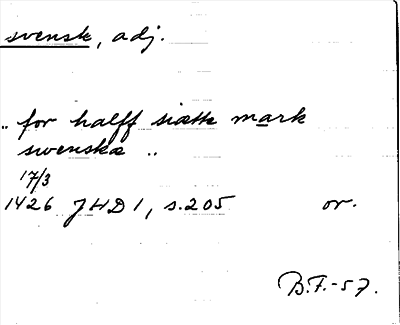 svensk, adj.
.. for halff siætte mark
swenska ..
17/3
1426 JHD 1, s.205 or.
B.F.-57.